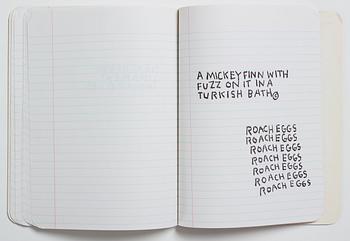 A MICKEY FINN WITH
FUZZ ON IT IN A
TURKISH BATH©
ROACH EGGS
ROACH EGGS
ROACH EGGS
ROACH EGGS
ROACH EGGS
ROACH EGGS
ROACH EGGS
ROACH EGGS